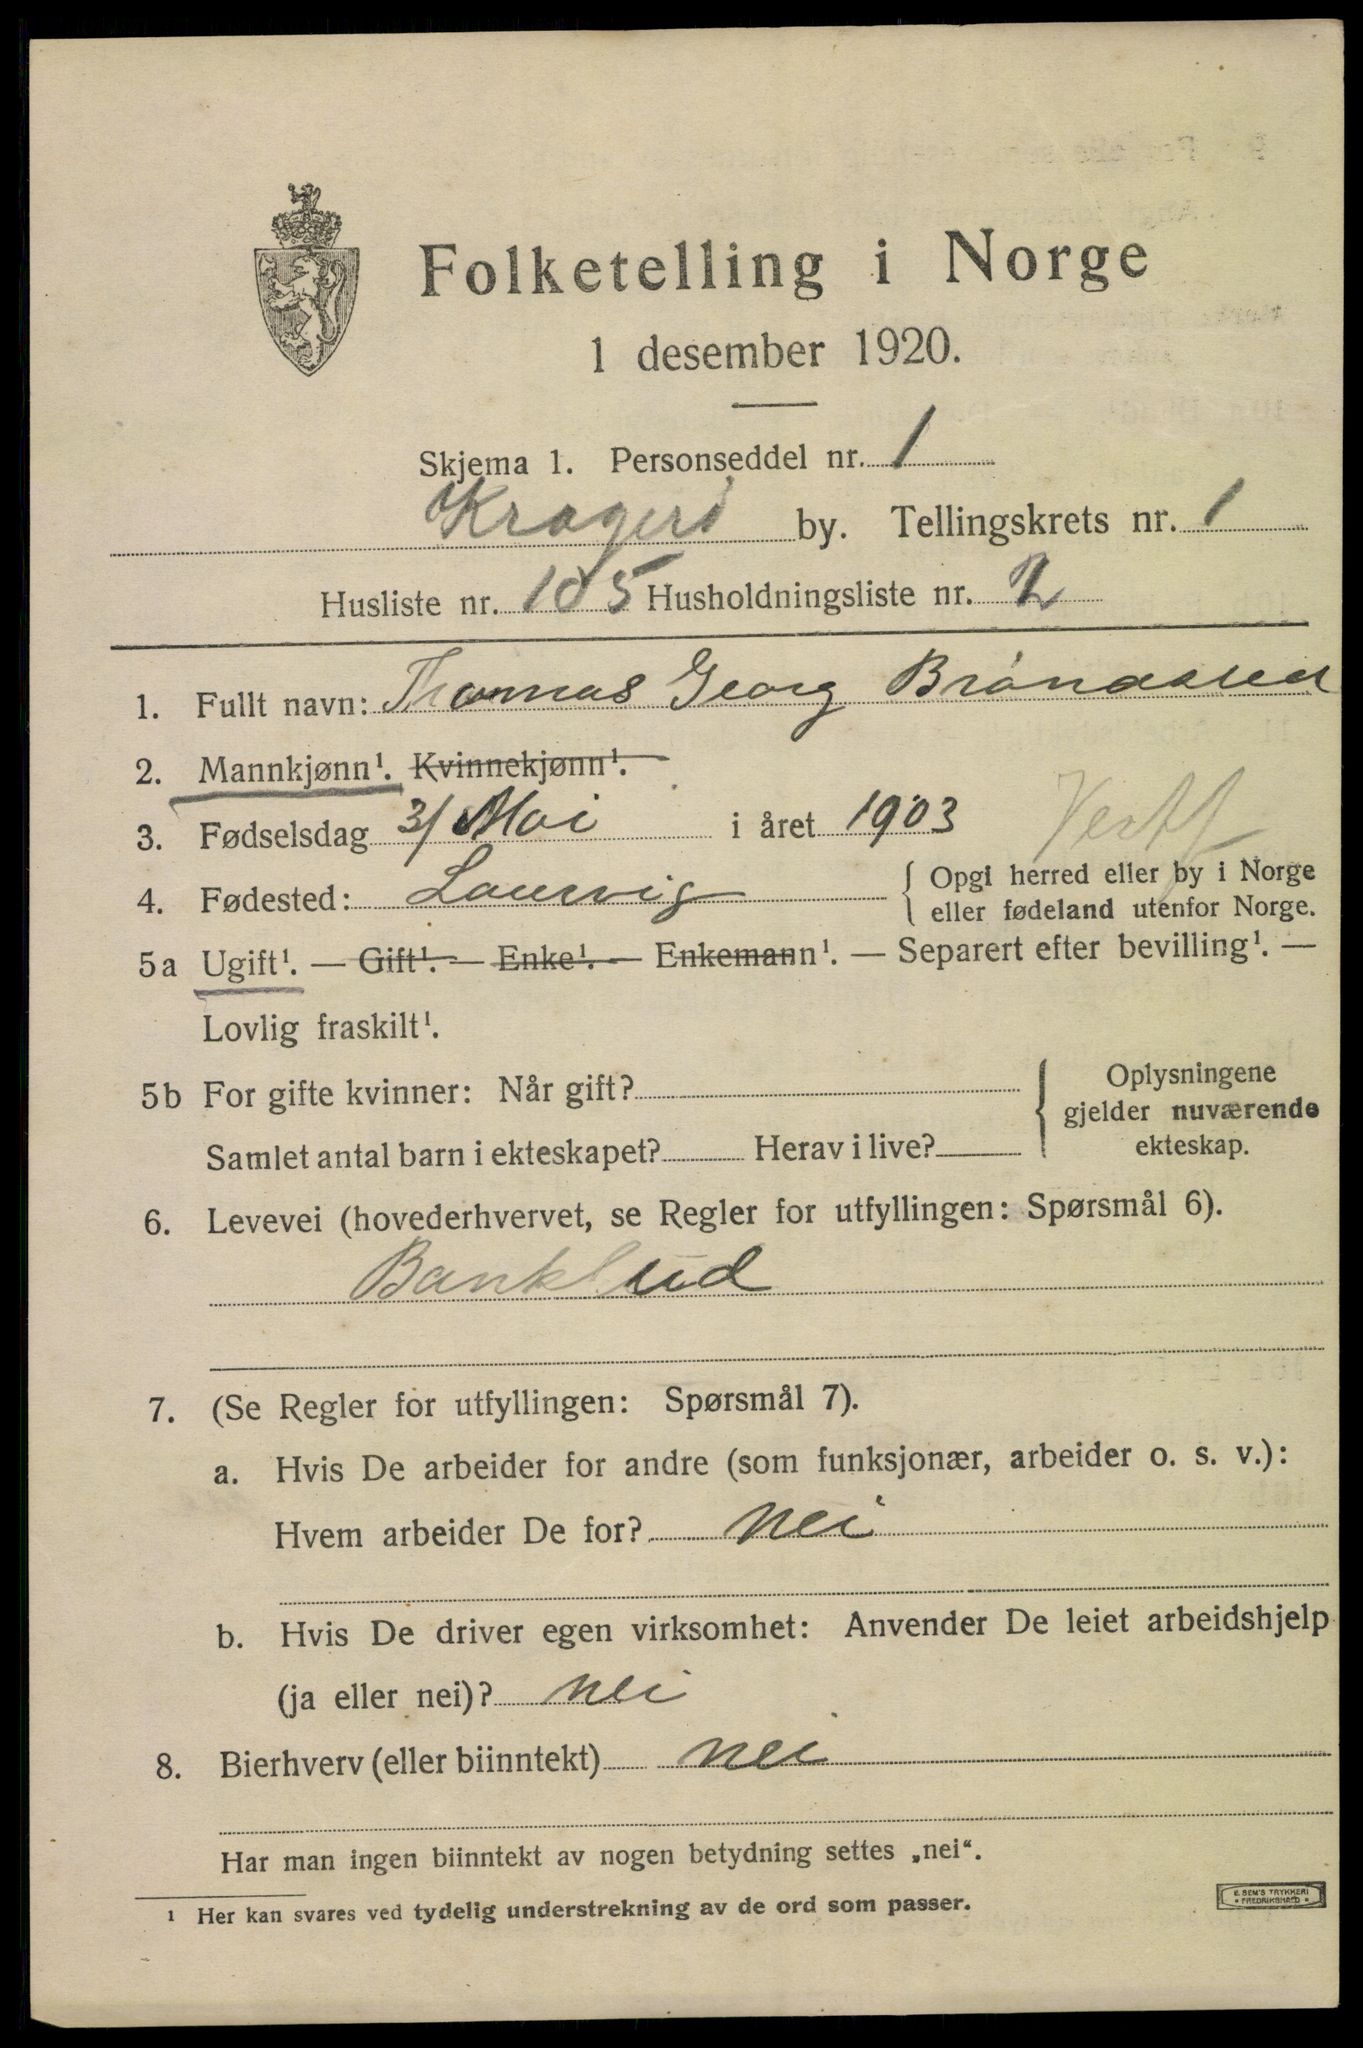 Folketelling i Norge
1 desember 1920.
Skjema 1. Personseddel nr. 1
Kragerö by. Tellingskrets nr. 1
Husliste nr. 105 Husholdningsliste nr. 2
1. Fullt navn: Thomas Georg
2. Mannkjønn¹. Kvinnekjønn¹.
3. Fødselsdag 3/ Mai i året 1903
4. Fødested: Laurvig { Opgi herred eller by i Norge
eller fødeland utenfor Norge.
5a Ugift¹. — Gift¹. — Enke¹. — Enkemann¹. — Separert efter bevilling¹. —
Lovlig fraskilt¹.
5b For gifte kvinner: Når gift? { Oplysningene
gjelder nuværende
Samlet antal barn i ekteskapet? Herav i live? ekteskap.
6. Levevei (hovederhvervet, se Regler for utfyllingen: Spørsmål 6).
Bankbud
7. (Se Regler for utfyllingen: Spørsmål 7).
a. Hvis De arbeider for andre (som funksjonær, arbeider o. s. v.):
Hvem arbeider De for? nei
b. Hvis De driver egen virksomhet: Anvender De leiet arbeidshjelp
(ja eller nei)? nei
8. Bierhverv (eller biinntekt) nei
Har man ingen biinntekt av nogen betydning settes „nei“.
¹ Her kan svares ved tydelig understrekning av de ord som passer.
E. SEM'S TRYKKERI
FREDRIKSHALD